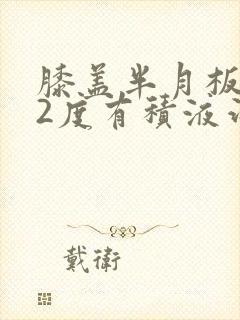 膝盖半月板
2度有積液
戴衛